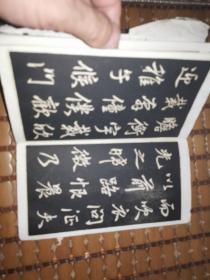 而吹衣問征夫
以前路恨晨
光之晞微乃
瞻衡宇載欣
載奔僮僕歡
迎稚子候門